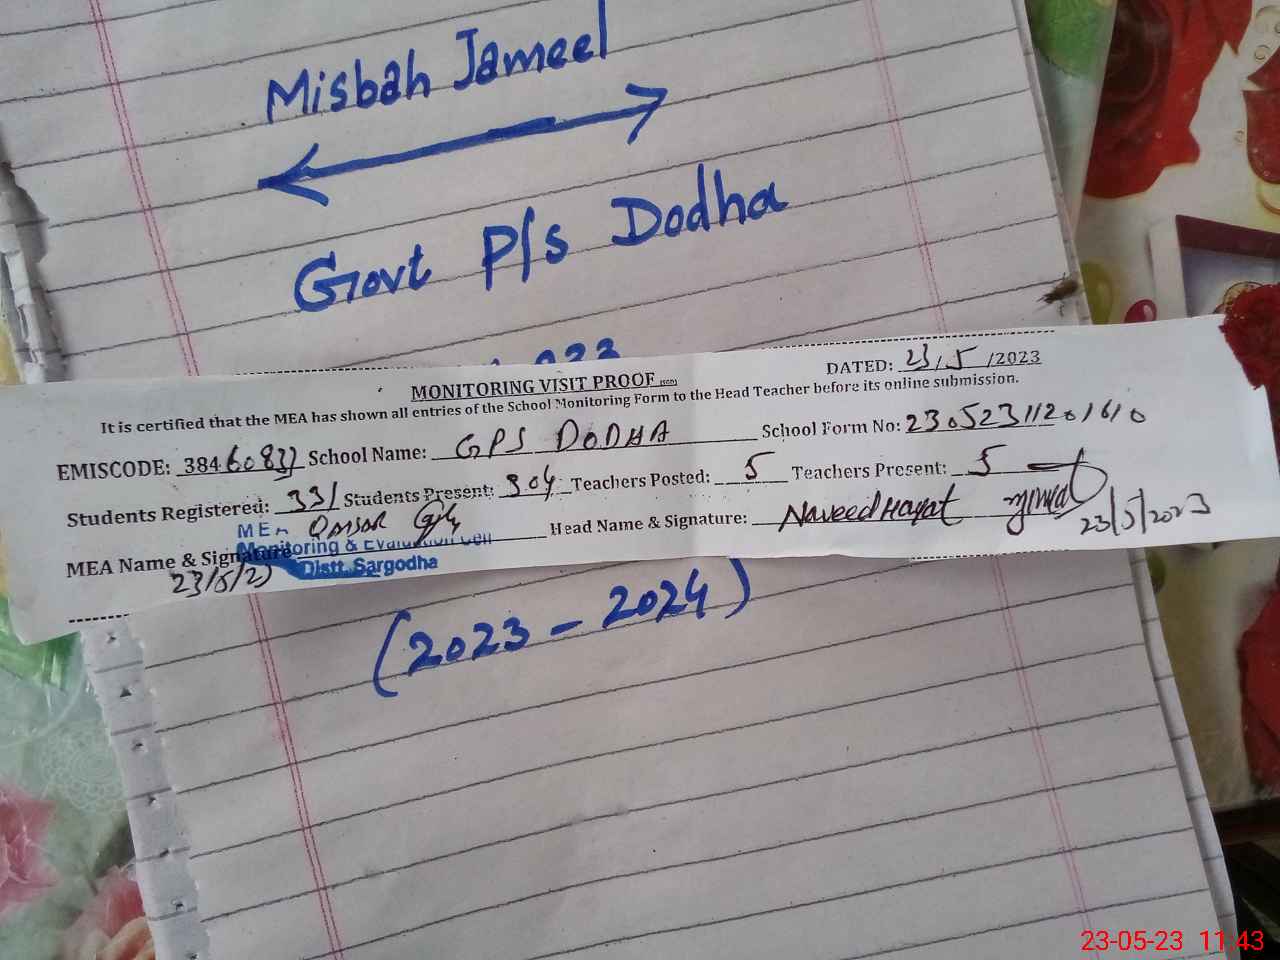 Misbah Jameel
Govt P/s Dodha
MONITORING VISIT PROOF
DATED: 23/5/2023
It is certified that the MEA has shown all entries of the School Monitoring Form to the Head Teacher before its online submission.
EMISCODE: 384 School Name: GPS DODHA School Form No:
Students Registered: 331 Students Present: 304 Teachers Posted: 5 Teachers Present: 5
MEA Name & Signature Head Name & Signature: Naveed Hayat 23/5/2023
MEA
Monitoring & Evaluation Cell
Distt. Sargodha
23/5/23
(2023 - 2024)
23-05-23 11:43